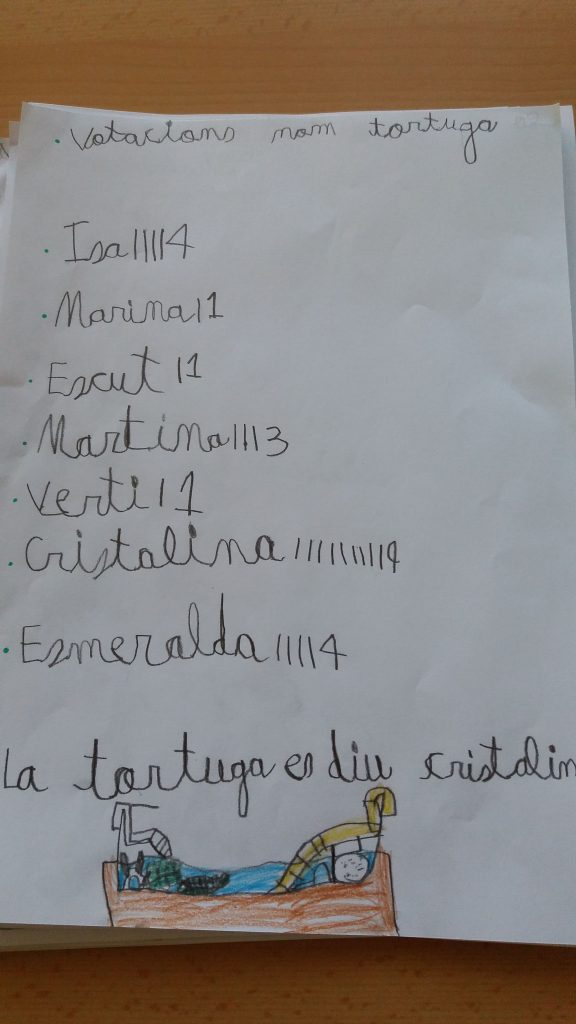 . Votacions nom tortuga
. Isa | | | | 4
. Marina | 1
. Escut | 1
. Martina | | | 3
. Verti | 1
. Cristalina | | | | | | | | | 9
. Esmeralda | | | | 4
La tortuga es diu cristalin